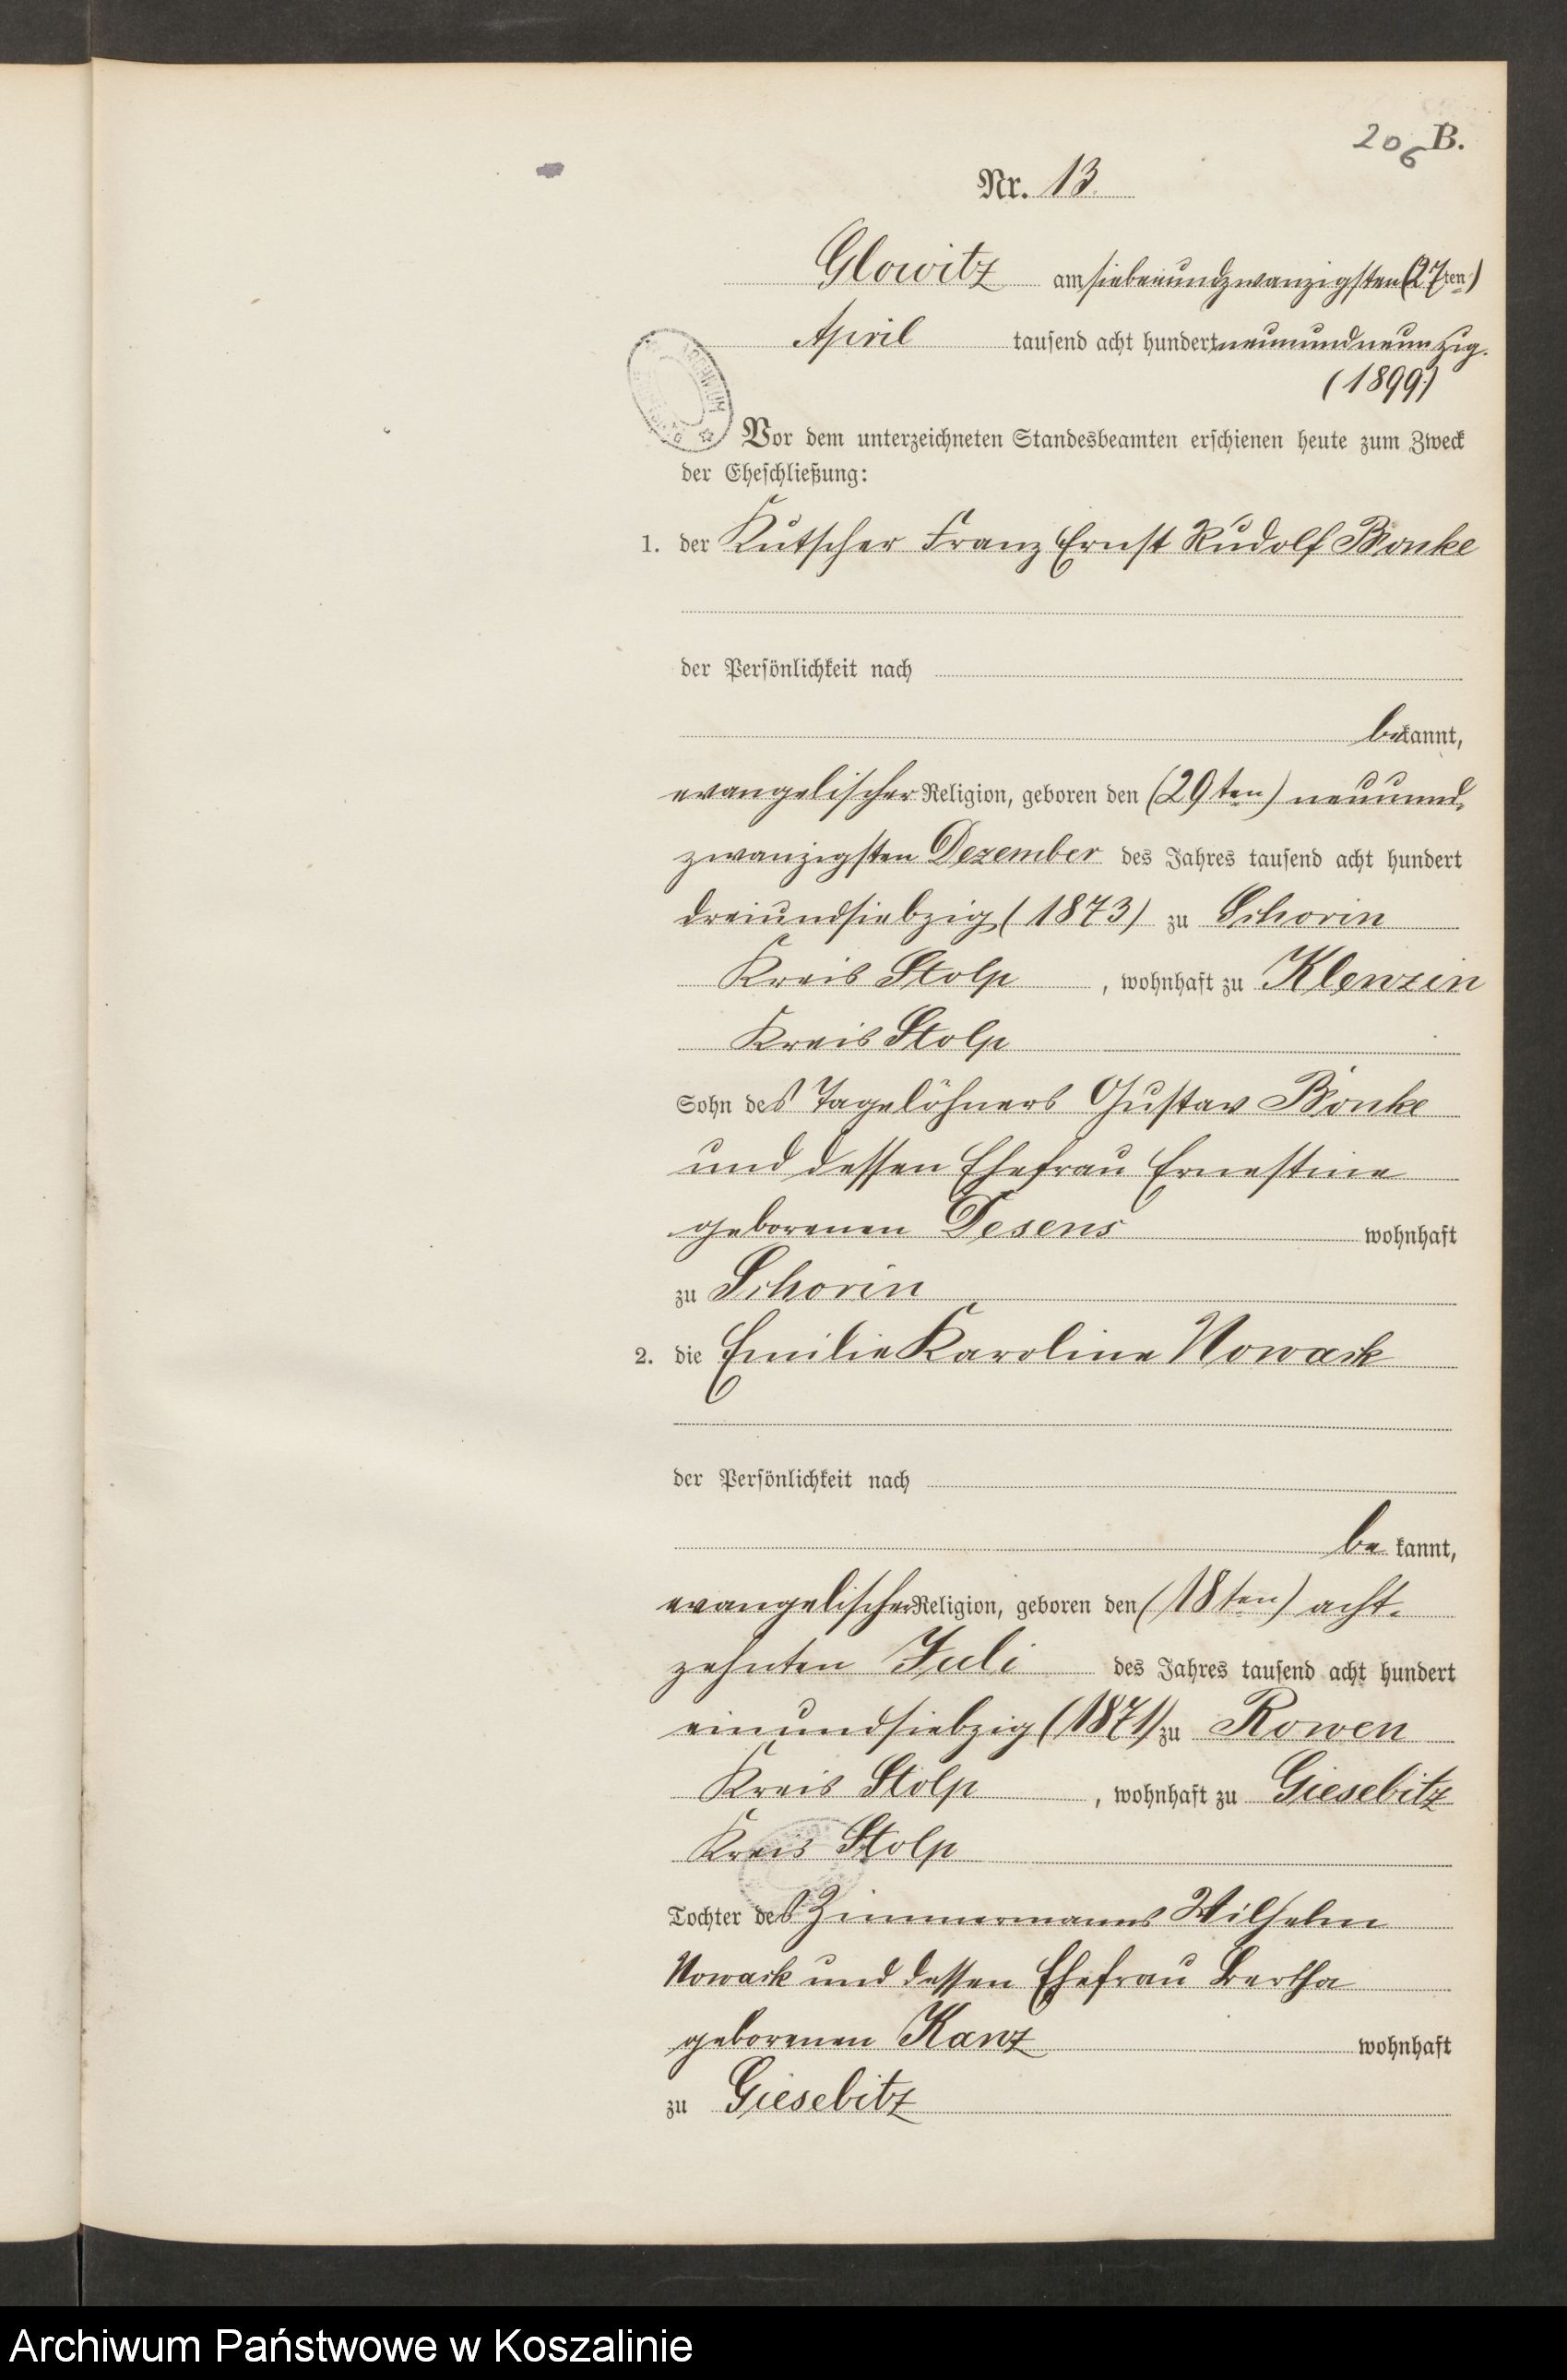 206 B.
Nr. 13.
Glowitz am siebenundzwanzigsten (27ten)
April tausend acht hundert neunundneunzig.
(1899)
ARCHIWUM
Vor dem unterzeichneten Standesbeamten erschienen heute zum Zweck
der Eheschließung:
1. der Kutscher Franz Ernst Rudolf Bonke
der Persönlichkeit nach
bekannt,
evangelischer Religion, geboren den (29ten) neunund-
zwanzigsten Dezember des Jahres tausend acht hundert
dreiundsiebzig (1873) zu Schorin
Kreis Stolp, wohnhaft zu Klenzin
Kreis Stolp
Sohn des Tagelöhners Gustav Bonke
und dessen Ehefrau Ernestine
geborenen Desens wohnhaft
zu Schorin
2. die Emilie Karoline Nowack
der Persönlichkeit nach
bekannt,
evangelischer Religion, geboren den (18ten) acht-
zehnten Juli des Jahres tausend acht hundert
einundsiebzig (1871) zu Rowen
Kreis Stolp, wohnhaft zu Giesebitz
Kreis Stolp
Tochter des Zimmermanns Wilhelm
Nowack und dessen Ehefrau Bertha
geborenen Kanz wohnhaft
zu Giesebitz
Archiwum Państwowe w Koszalinie